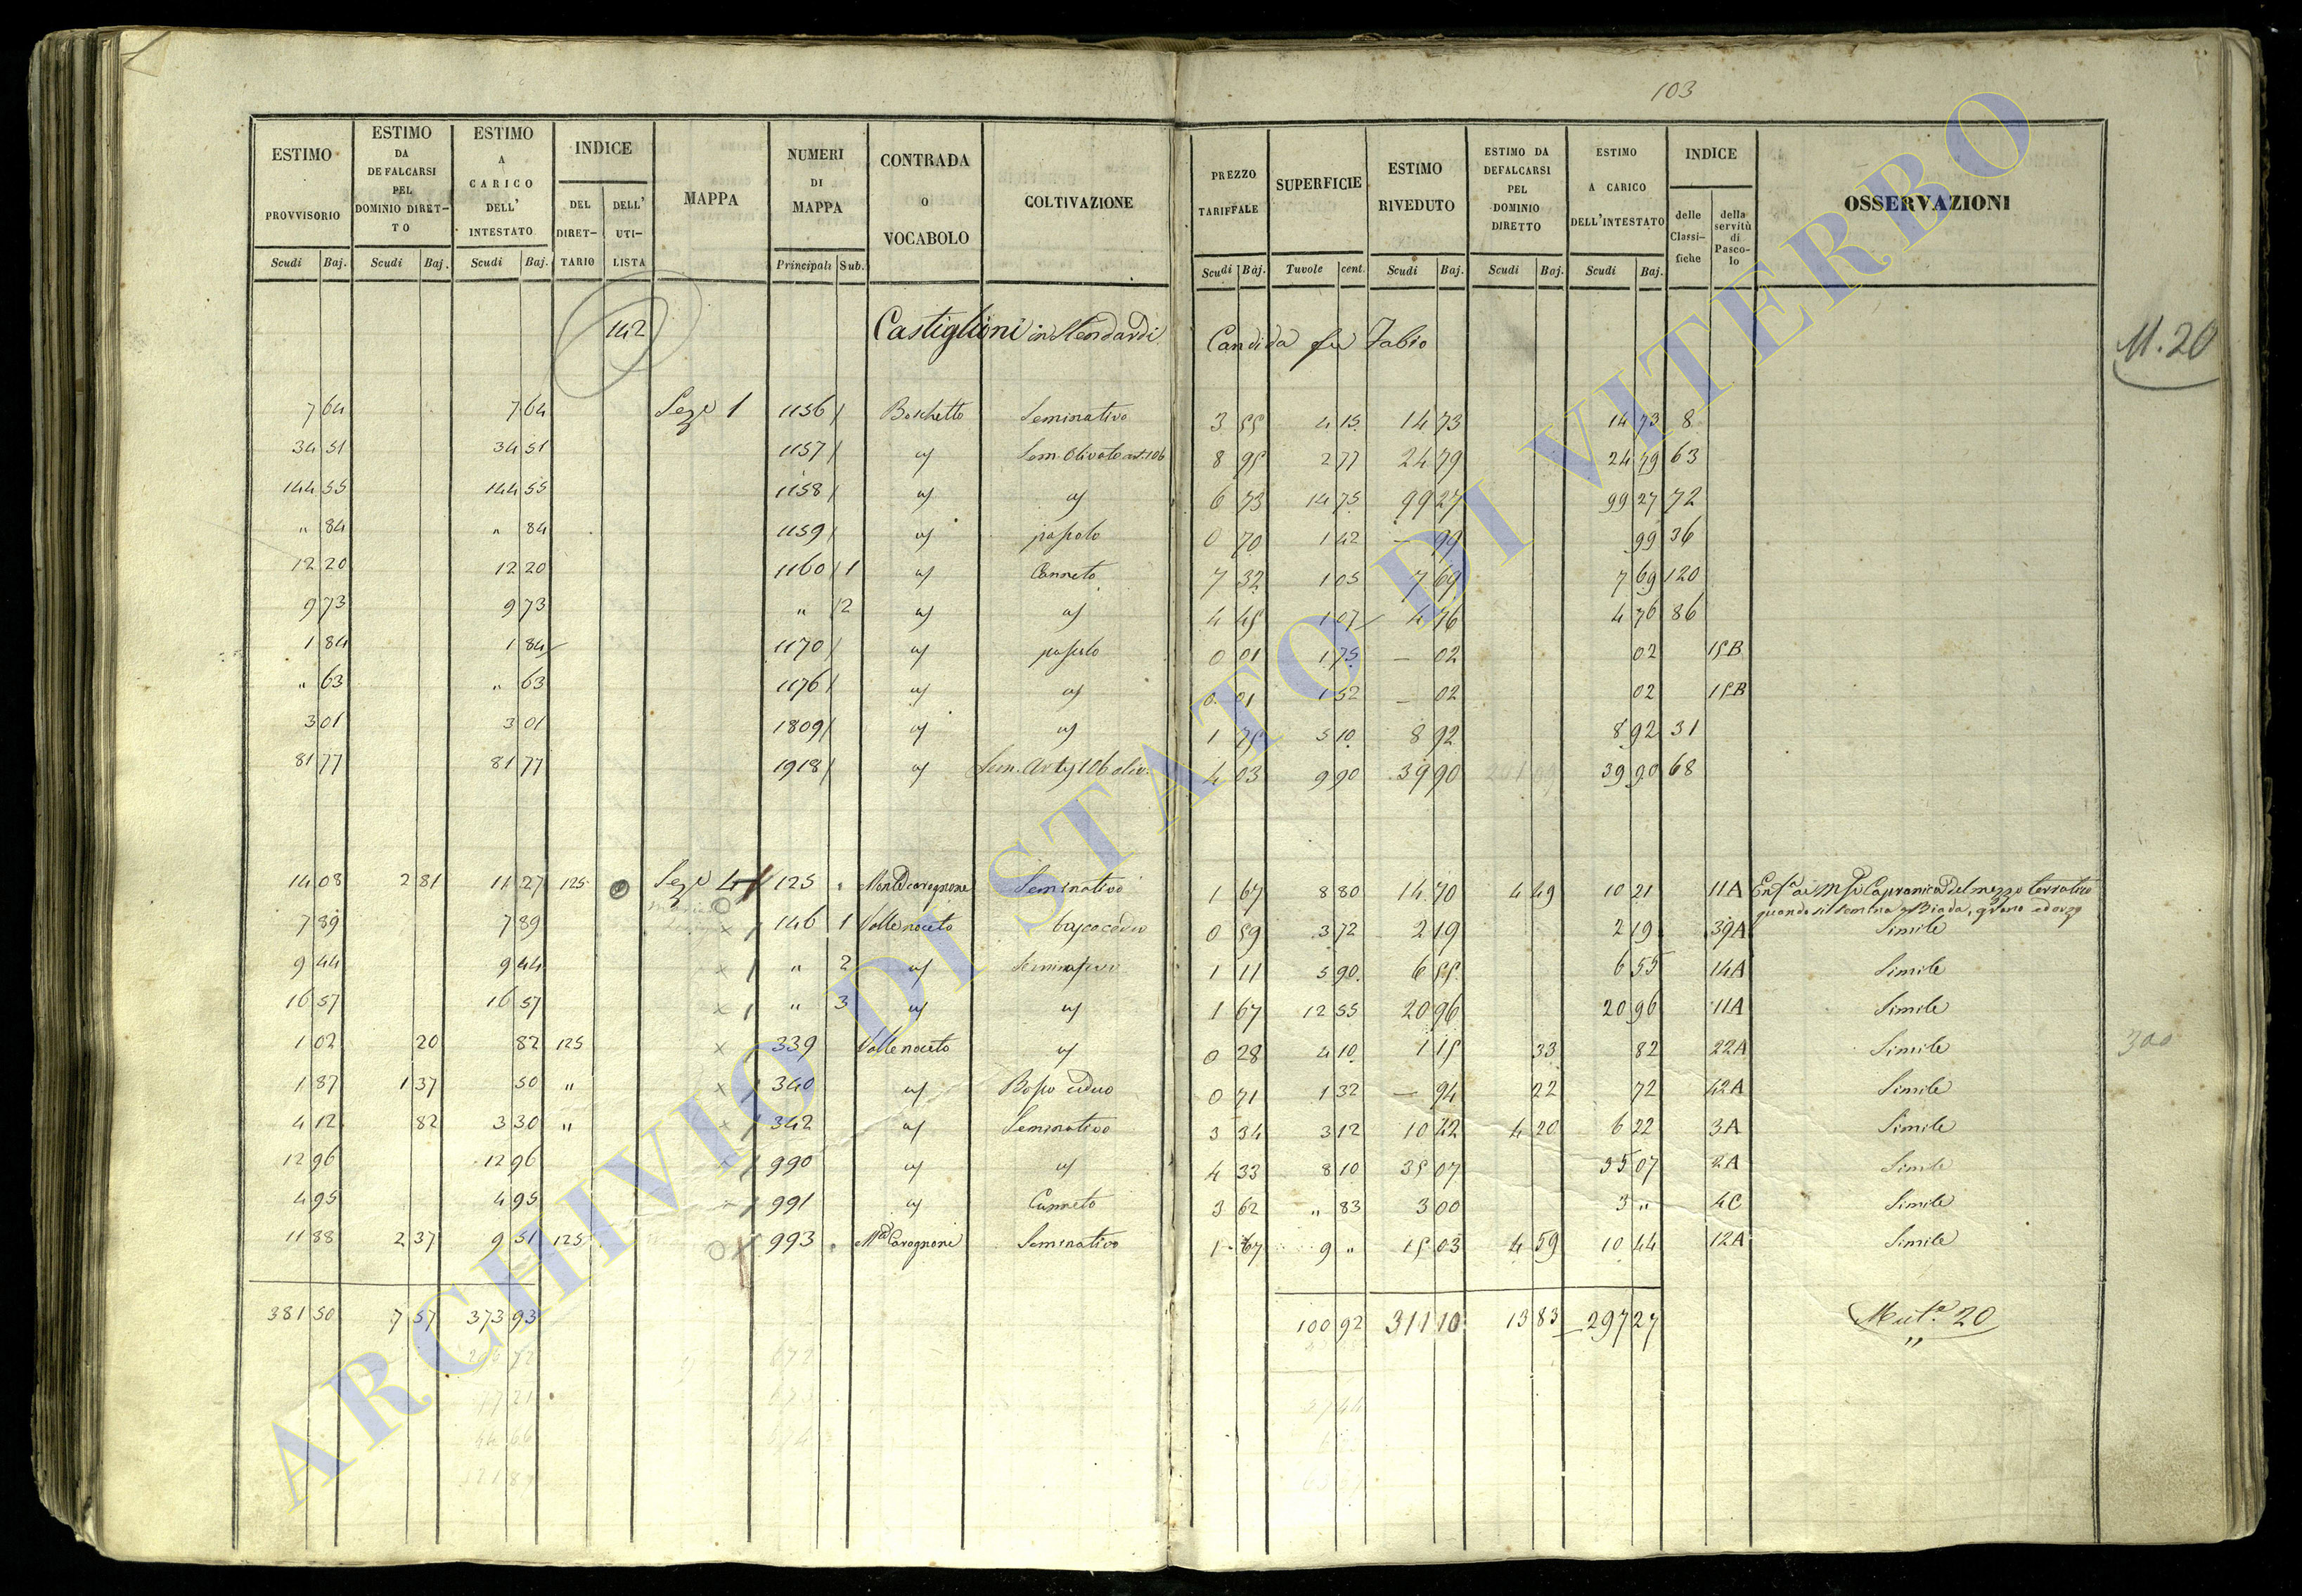 103
ESTIMO PROVVISORIO
ESTIMO DA DEFALCARSI PEL DOMINIO DIRET-TO
ESTIMO A CARICO DELL' INTESTATO
INDICE
DEL DIRET-TARIO
DELL' UTI-LISTA
MAPPA
NUMERI DI MAPPA
CONTRADA O VOCABOLO
COLTIVAZIONE
PREZZO TARIFFALE
SUPERFICIE
ESTIMO RIVEDUTO
ESTIMO DA DEFALCARSI PEL DOMINIO DIRETTO
ESTIMO A CARICO DELL'INTESTATO
INDICE
delle Classi-fiche
della servitù di Pasco-lo
OSSERVAZIONI
Scudi Baj. Scudi Baj. Scudi Baj. Principali Sub. Scudi Baj. Tavole cent. Scudi Baj. Scudi Baj. Scudi Baj.
142 Castiglioni in Candida fu Fabio
M. 20
7 64 7 64 Sez.e 1 1156 Boschetto Seminativo 3 55 4 15 14 73 14 73 8
34 51 34 51 1157 " Sem. Olivato art. 106 8 95 2 77 24 79 24 79 63
144 55 144 55 1158 " " 6 73 14 75 99 27 99 27 72
" 84 " 84 1159 " pascolo 0 70 1 42 — 99 99 36
12 20 12 20 1160 1 " Canneto 7 32 1 05 7 69 7 69 120
9 73 9 73 " 2 " " 4 45 1 07 4 76 4 76 86
1 84 1 84 1170 " pascolo 0 01 1 75 — 02 02 15B
" 63 " 63 1176 " " 0 01 1 52 — 02 02 15B
3 01 3 01 1809 " " 1 75 5 10 8 92 8 92 31
81 77 81 77 1918 " Sem. Art. 106 oliv. 4 03 9 90 39 90 39 90 68
14 08 2 81 11 27 125 Sez.e 4 125 " Monte Cavagnone Seminativo 1 67 8 80 14 70 4 49 10 21 11A Capranica del mezzo terratico
quando si semina Biada, grano ed orzo
7 89 7 89 146 1 Valle noceto bosco ceduo 0 59 3 72 2 19 2 19 39A Simile
9 44 9 44 " 2 " Seminativo 1 11 5 90 6 55 6 55 14A Simile
16 57 16 57 " 3 " " 1 67 12 55 20 96 20 96 11A Simile
1 02 20 82 125 339 Valle noceto " 0 28 4 10 1 15 33 82 22A Simile
1 87 1 37 50 " 340 " Bosco ceduo 0 71 1 32 — 94 22 72 42A Simile
4 12 82 3 30 " 342 " Seminativo 3 34 3 12 10 42 4 20 6 22 3A Simile
12 96 12 96 990 " " 4 33 8 10 35 07 35 07 2A Simile
4 95 4 95 991 " Canneto 3 62 " 83 3 00 3 " 4C Simile
11 88 2 37 9 51 125 993 " M.e Cavagnone Seminativo 1 67 9 " 15 03 4 59 10 44 12A Simile
381 50 7 57 373 93 100 92 311 10 13 83 297 27 Mut.e 20
300
ARCHIVIO DI STATO DI VITERBO